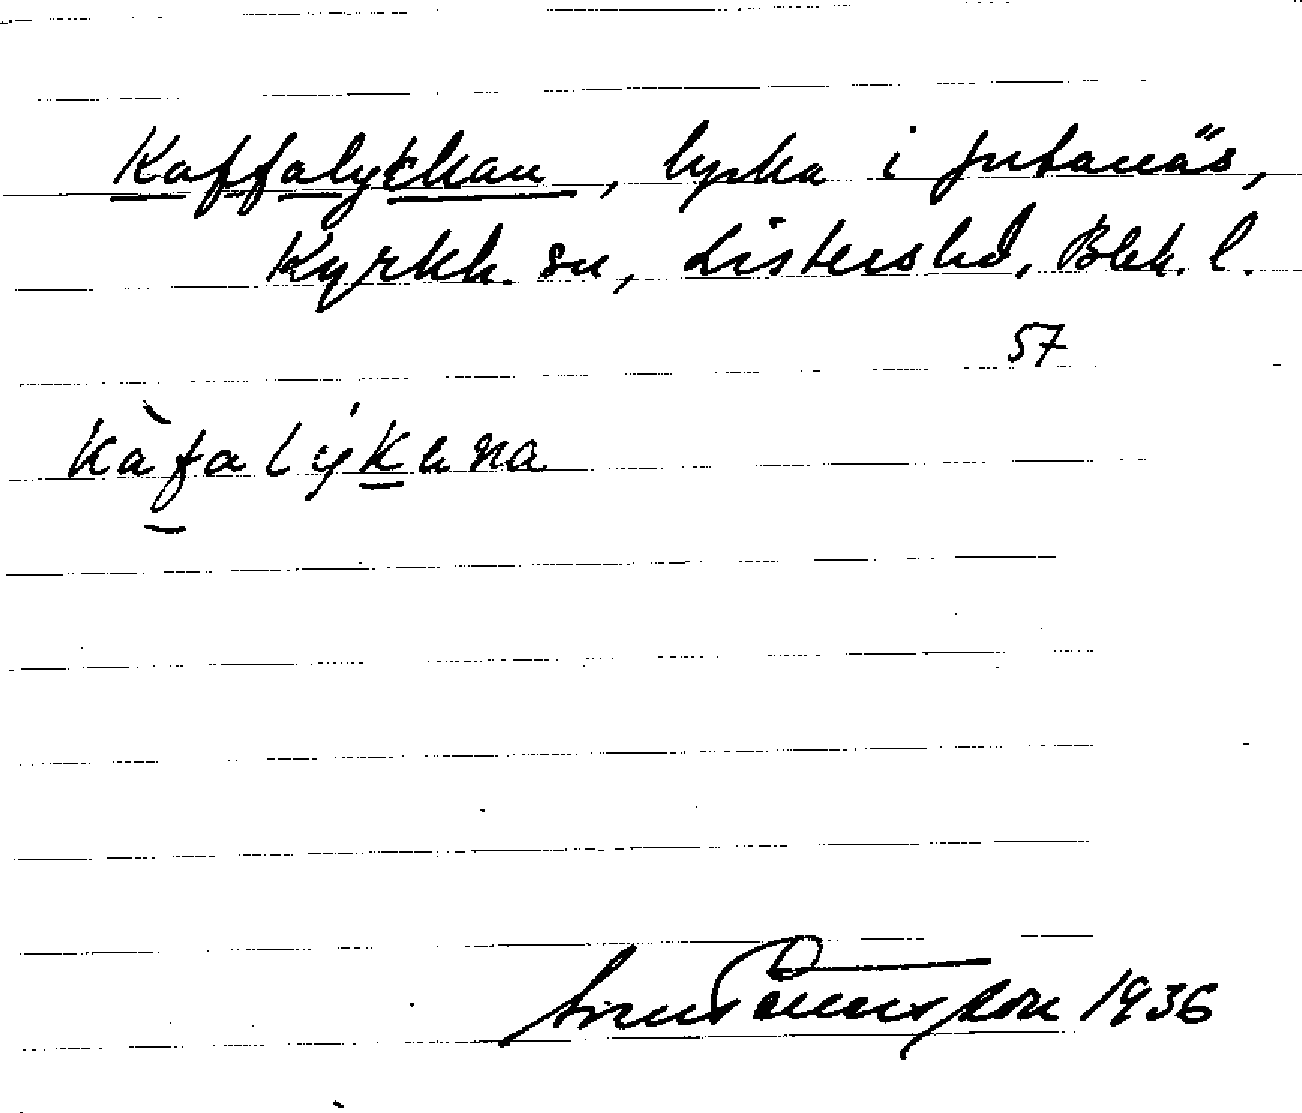 Kaffalyckan, lycka i Jutanäs,
Kyrkh. sn, Listers hd, Blek. l.
57
kàfalýkana
1936